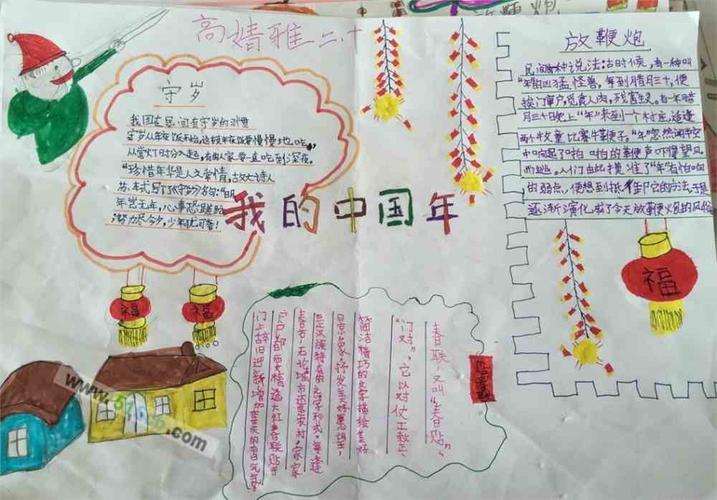 高婧雅 二、十
守岁
我国在民间有守岁的习惯
守岁从年夜饭开始,这顿年夜饭要慢慢地吃
从掌灯时分入席,有的人家要一直吃到深夜。
"珍惜年华是人之常情,古
年岂无年,心事恐蹉跎
努力尽今夕,少年犹可夸!
我的中国年
放鞭炮
民间有种说法:古时候,有一种叫
"年"的凶猛怪兽,每到腊月三十,便
挨门窜户,觅食人肉,残害生灵。有一年腊
月三十日晚上"年"来到一个村庄,适逢
两个牧童比赛牛鞭子,"年"忽然闻半空
中响起了啪啪的鞭声吓得望风
而逃。人们由此摸准了"年"有怕响
的弱点,便想到抵御它的方法,于是
逐渐演化成了今天放鞭炮的风俗
福
福
福
春联,又叫"春贴"、
"门对",它以对仗工整、
简洁精巧的文字描绘美好
形象,抒发美好愿望,
是我国特有的文学形式。每逢
春节,无论城市还是农村,家家
户户都
门上辞旧迎新,增加
www.